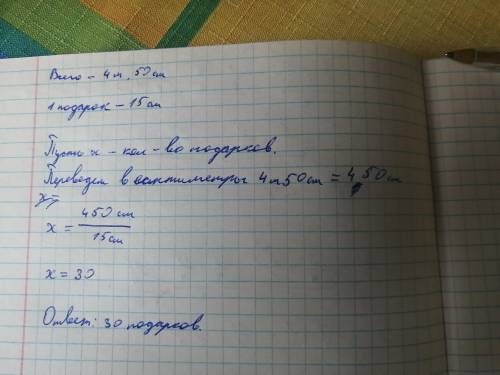 Всего – 4м. 50см
1 подарок – 15см
Пусть x – кол-во подарков.
Переведем в сантиметры 4м50см = 450см
x =
x = 450см / 15см
x = 30
Ответ: 30 подарков.